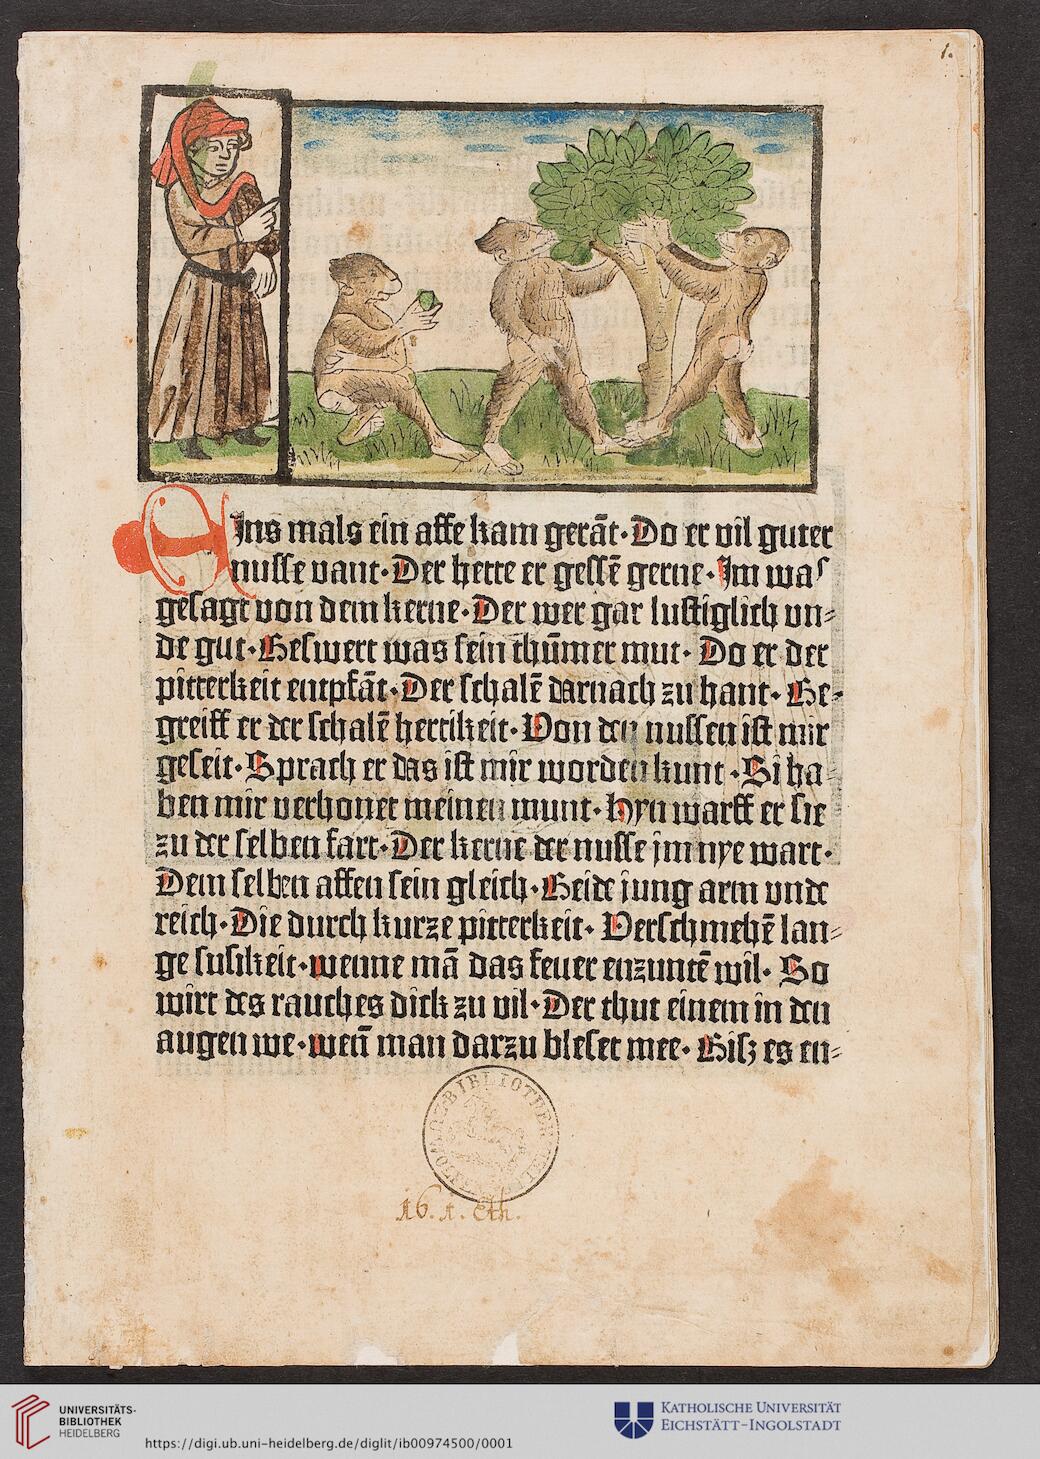 1.
EIns mals ein affe kam gerāt· Do er vil guter
nusse vant· Der hette er gessē gerne· Im was
gesagt von dem kerne· Der wer gar lustiglich vn⸗
de gut· Beswert was sein thūmer mut· Do er der
pitterkeit entpfāt· Der schalē darnach zu hant· Be⸗
greiff er der schalē hertikeit· Von den nussen ist mir
geseit· Sprach er das ist mir worden kunt· Si ha⸗
ben mir verhonet meinen munt· Hyn warff er sie
zu der selben fart· Der kerne der nusse jm nye wart·
Dem selben affen sein gleich· Beide jung arm vnde
reich· Die durch kurze pitterkeit· Verschmehē lan⸗
ge susikeit· wenne mā das feuer enzuntē wil· So
wirt des rauches dick zu vil· Der thut einem in den
augen we· wen̄ man darzu bleset mee· Bisz es en⸗
16. 1. Eth.
UNIVERSITÄTS-
BIBLIOTHEK
HEIDELBERG
https://digi.ub.uni-heidelberg.de/diglit/ib00974500/0001
KATHOLISCHE UNIVERSITÄT
EICHSTÄTT-INGOLSTADT